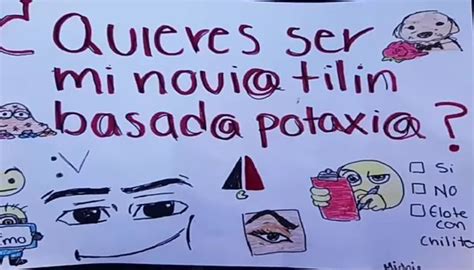 ¿Quieres ser
mi novi@ tilin
basad@ potaxi@?
:V
□ Si
□ NO
□ Elote
con
chilito